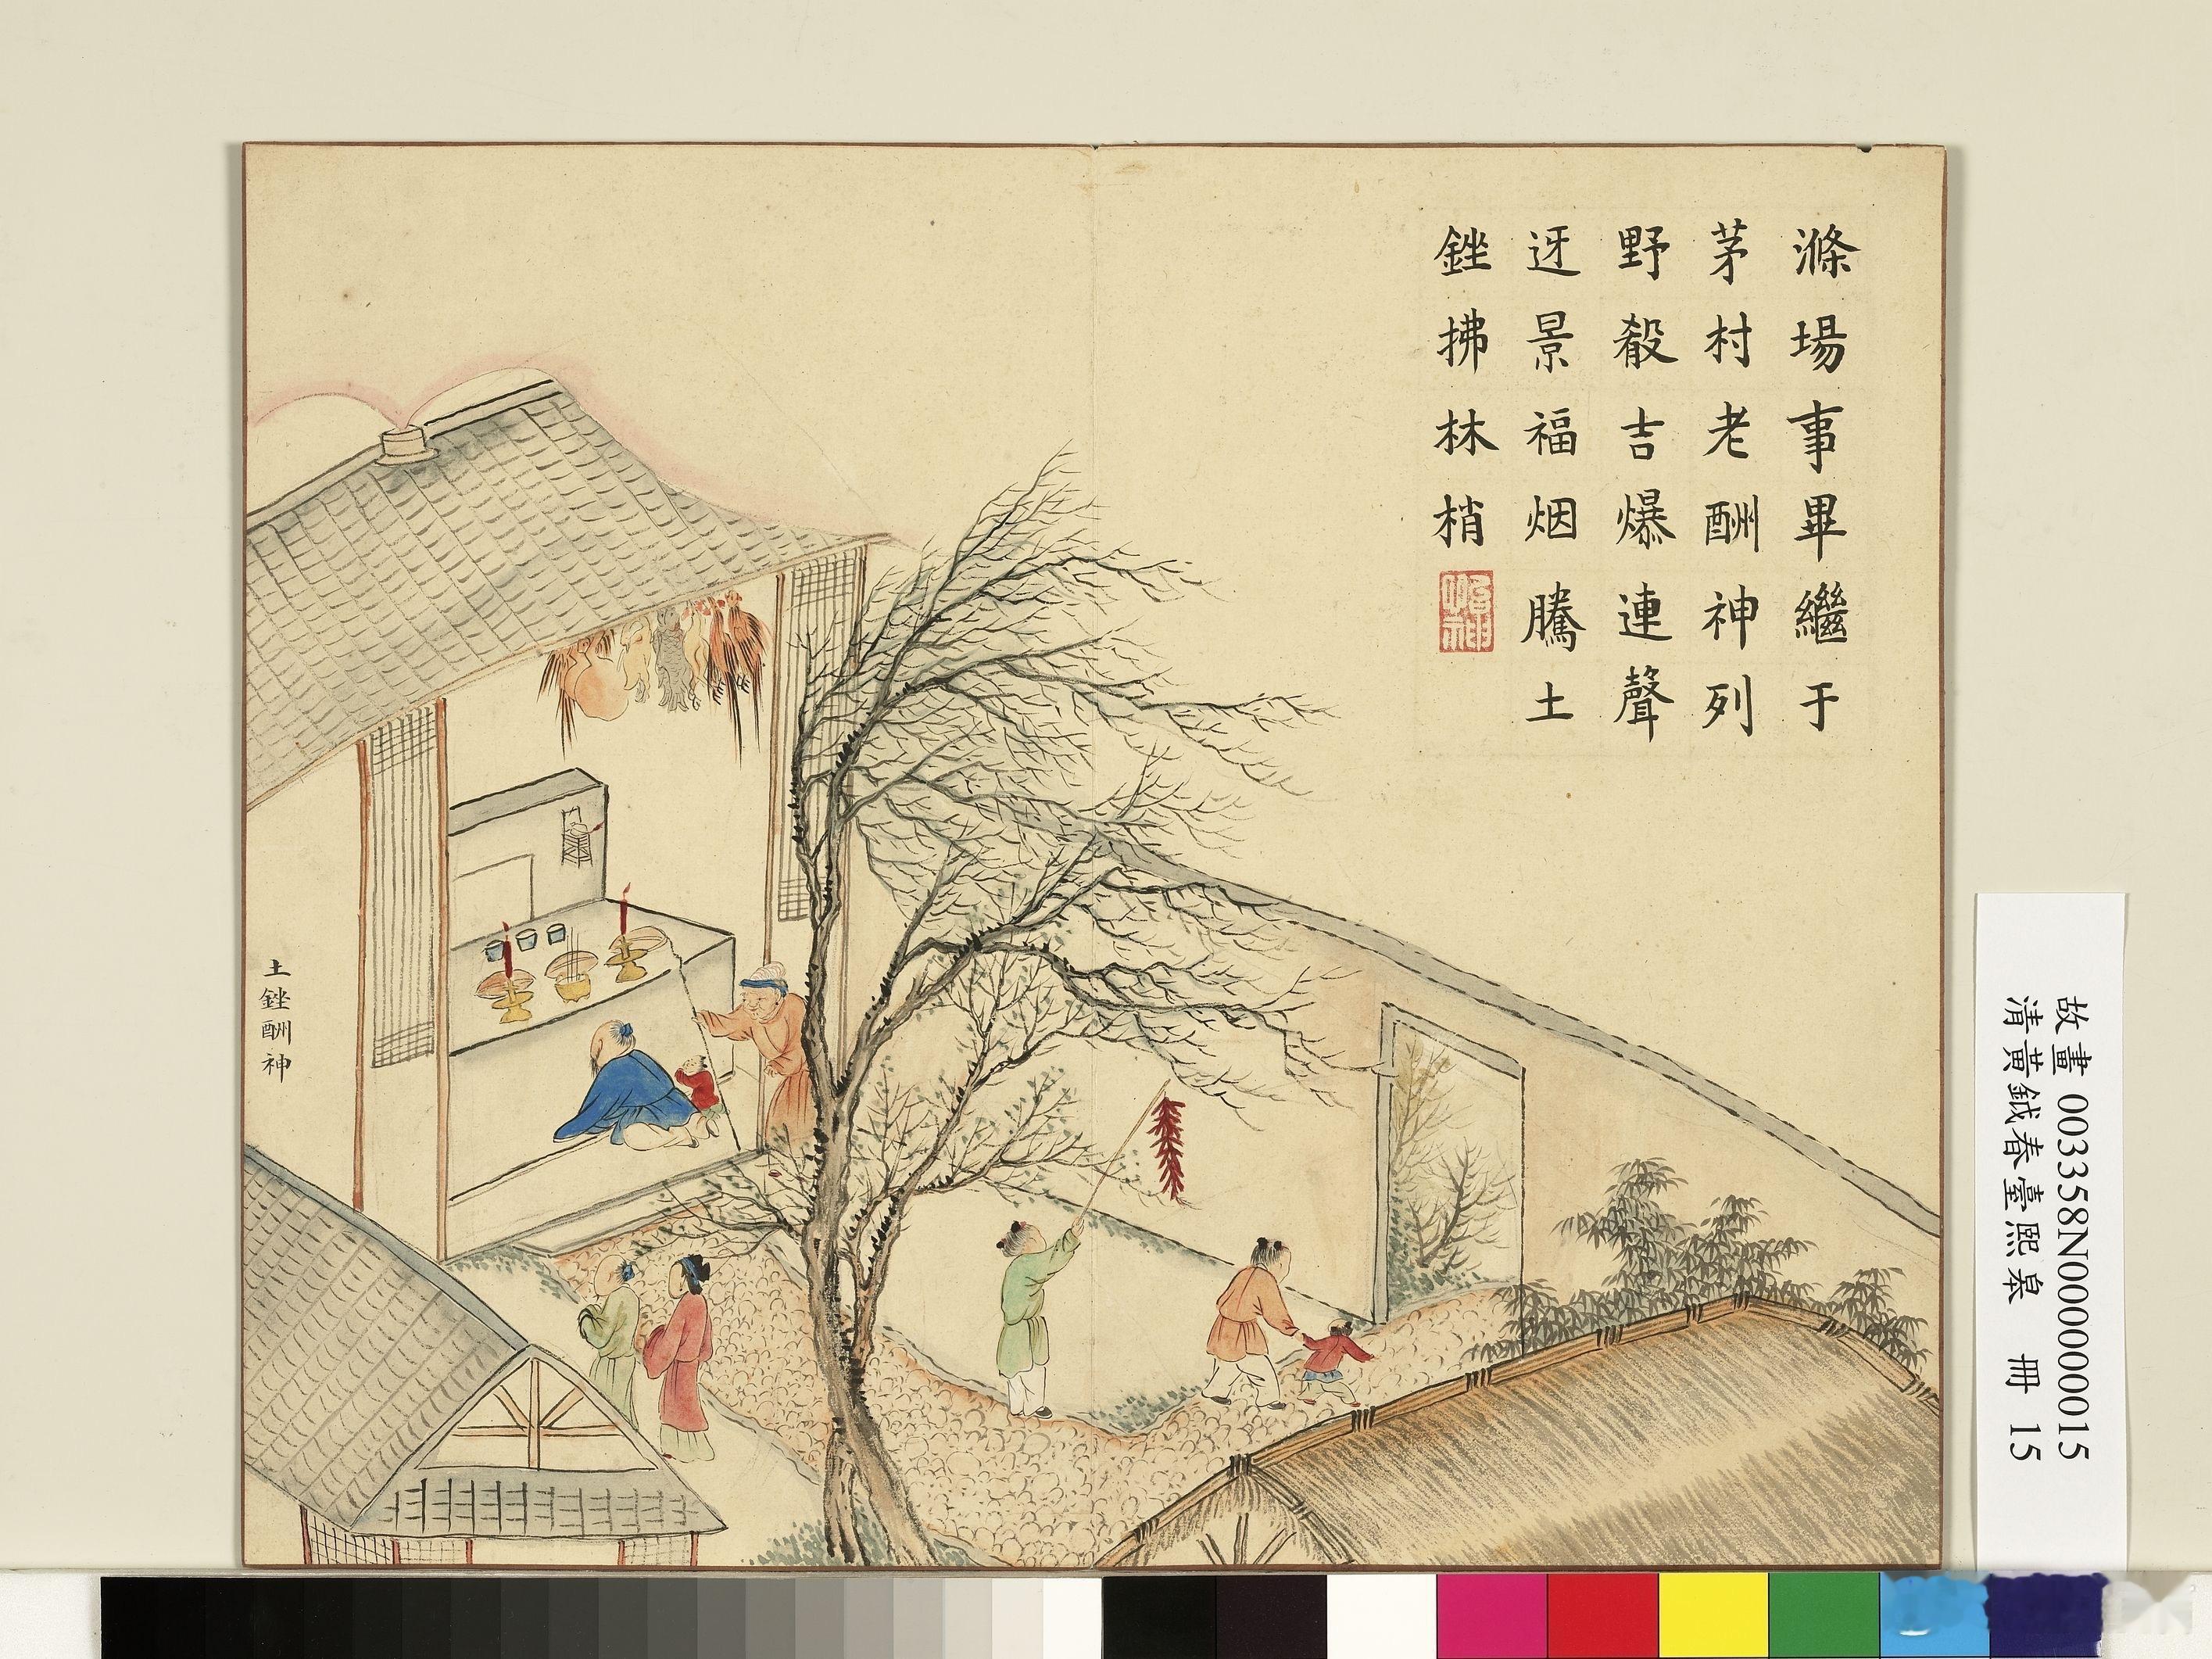 滌場事畢繼于
茅村老酬神列
野殽吉爆連聲
迓景福烟騰土
銼拂林梢
土銼酬神
故畫 003358N000000015
清黃鉞春臺熙皋 冊 15